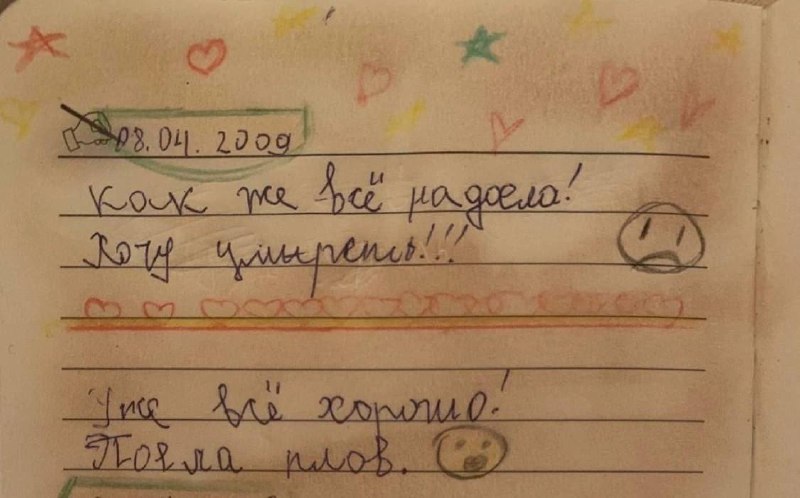 08.04.2009
как же всё надоела!
Хочу умыреть!!!
Уже всё хорошо!
Поела плов.